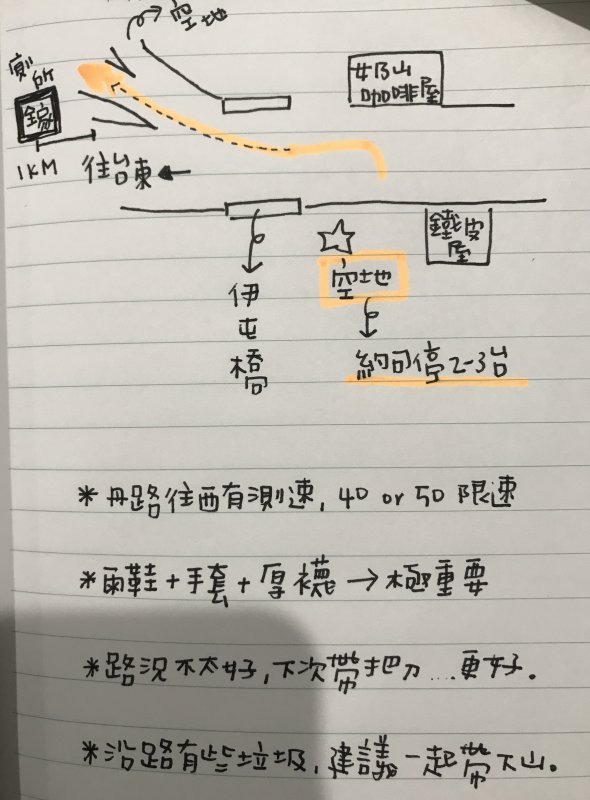 空地
廁所
鎵
1KM
往台東
女乃山
咖啡屋
鐵皮屋
伊屯橋
空地
約可停2-3台
*丹路往西有測速, 40 or 50 限速
*雨鞋+手套+厚襪→極重要
*路況不太好, 下次帶把刀....更好。
*沿路有些垃圾, 建議一起帶下山。